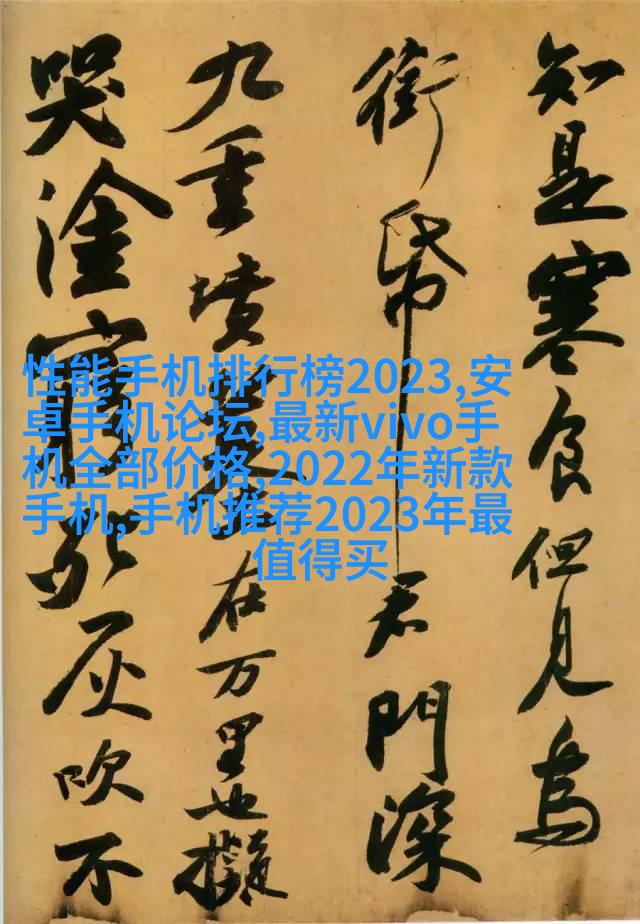 知是寒食但見烏
銜帋君門深
九重墳墓在万里也擬
哭塗窮死灰吹不
性能手机排行榜2023,安
卓手机论坛,最新vivo手
机全部价格,2022年新款
手机,手机推荐2023年最
值得买